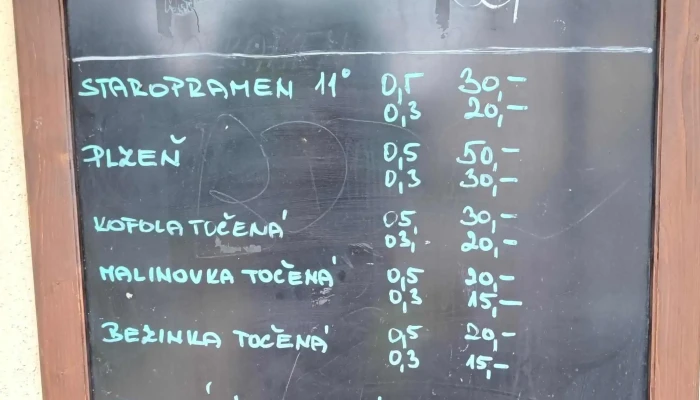 STAROPRAMEN 11° 0,5 30,-
0,3 20,-
PLZEŇ 0,5 50,-
0,3 30,-
KOFOLA TOČENÁ 05 30,-
03, 20,-
MALINOVKA TOČENÁ 0,5 20,-
0,3 15,-
BEZINKA TOČENÁ 0,5 20,-
0,3 15,-